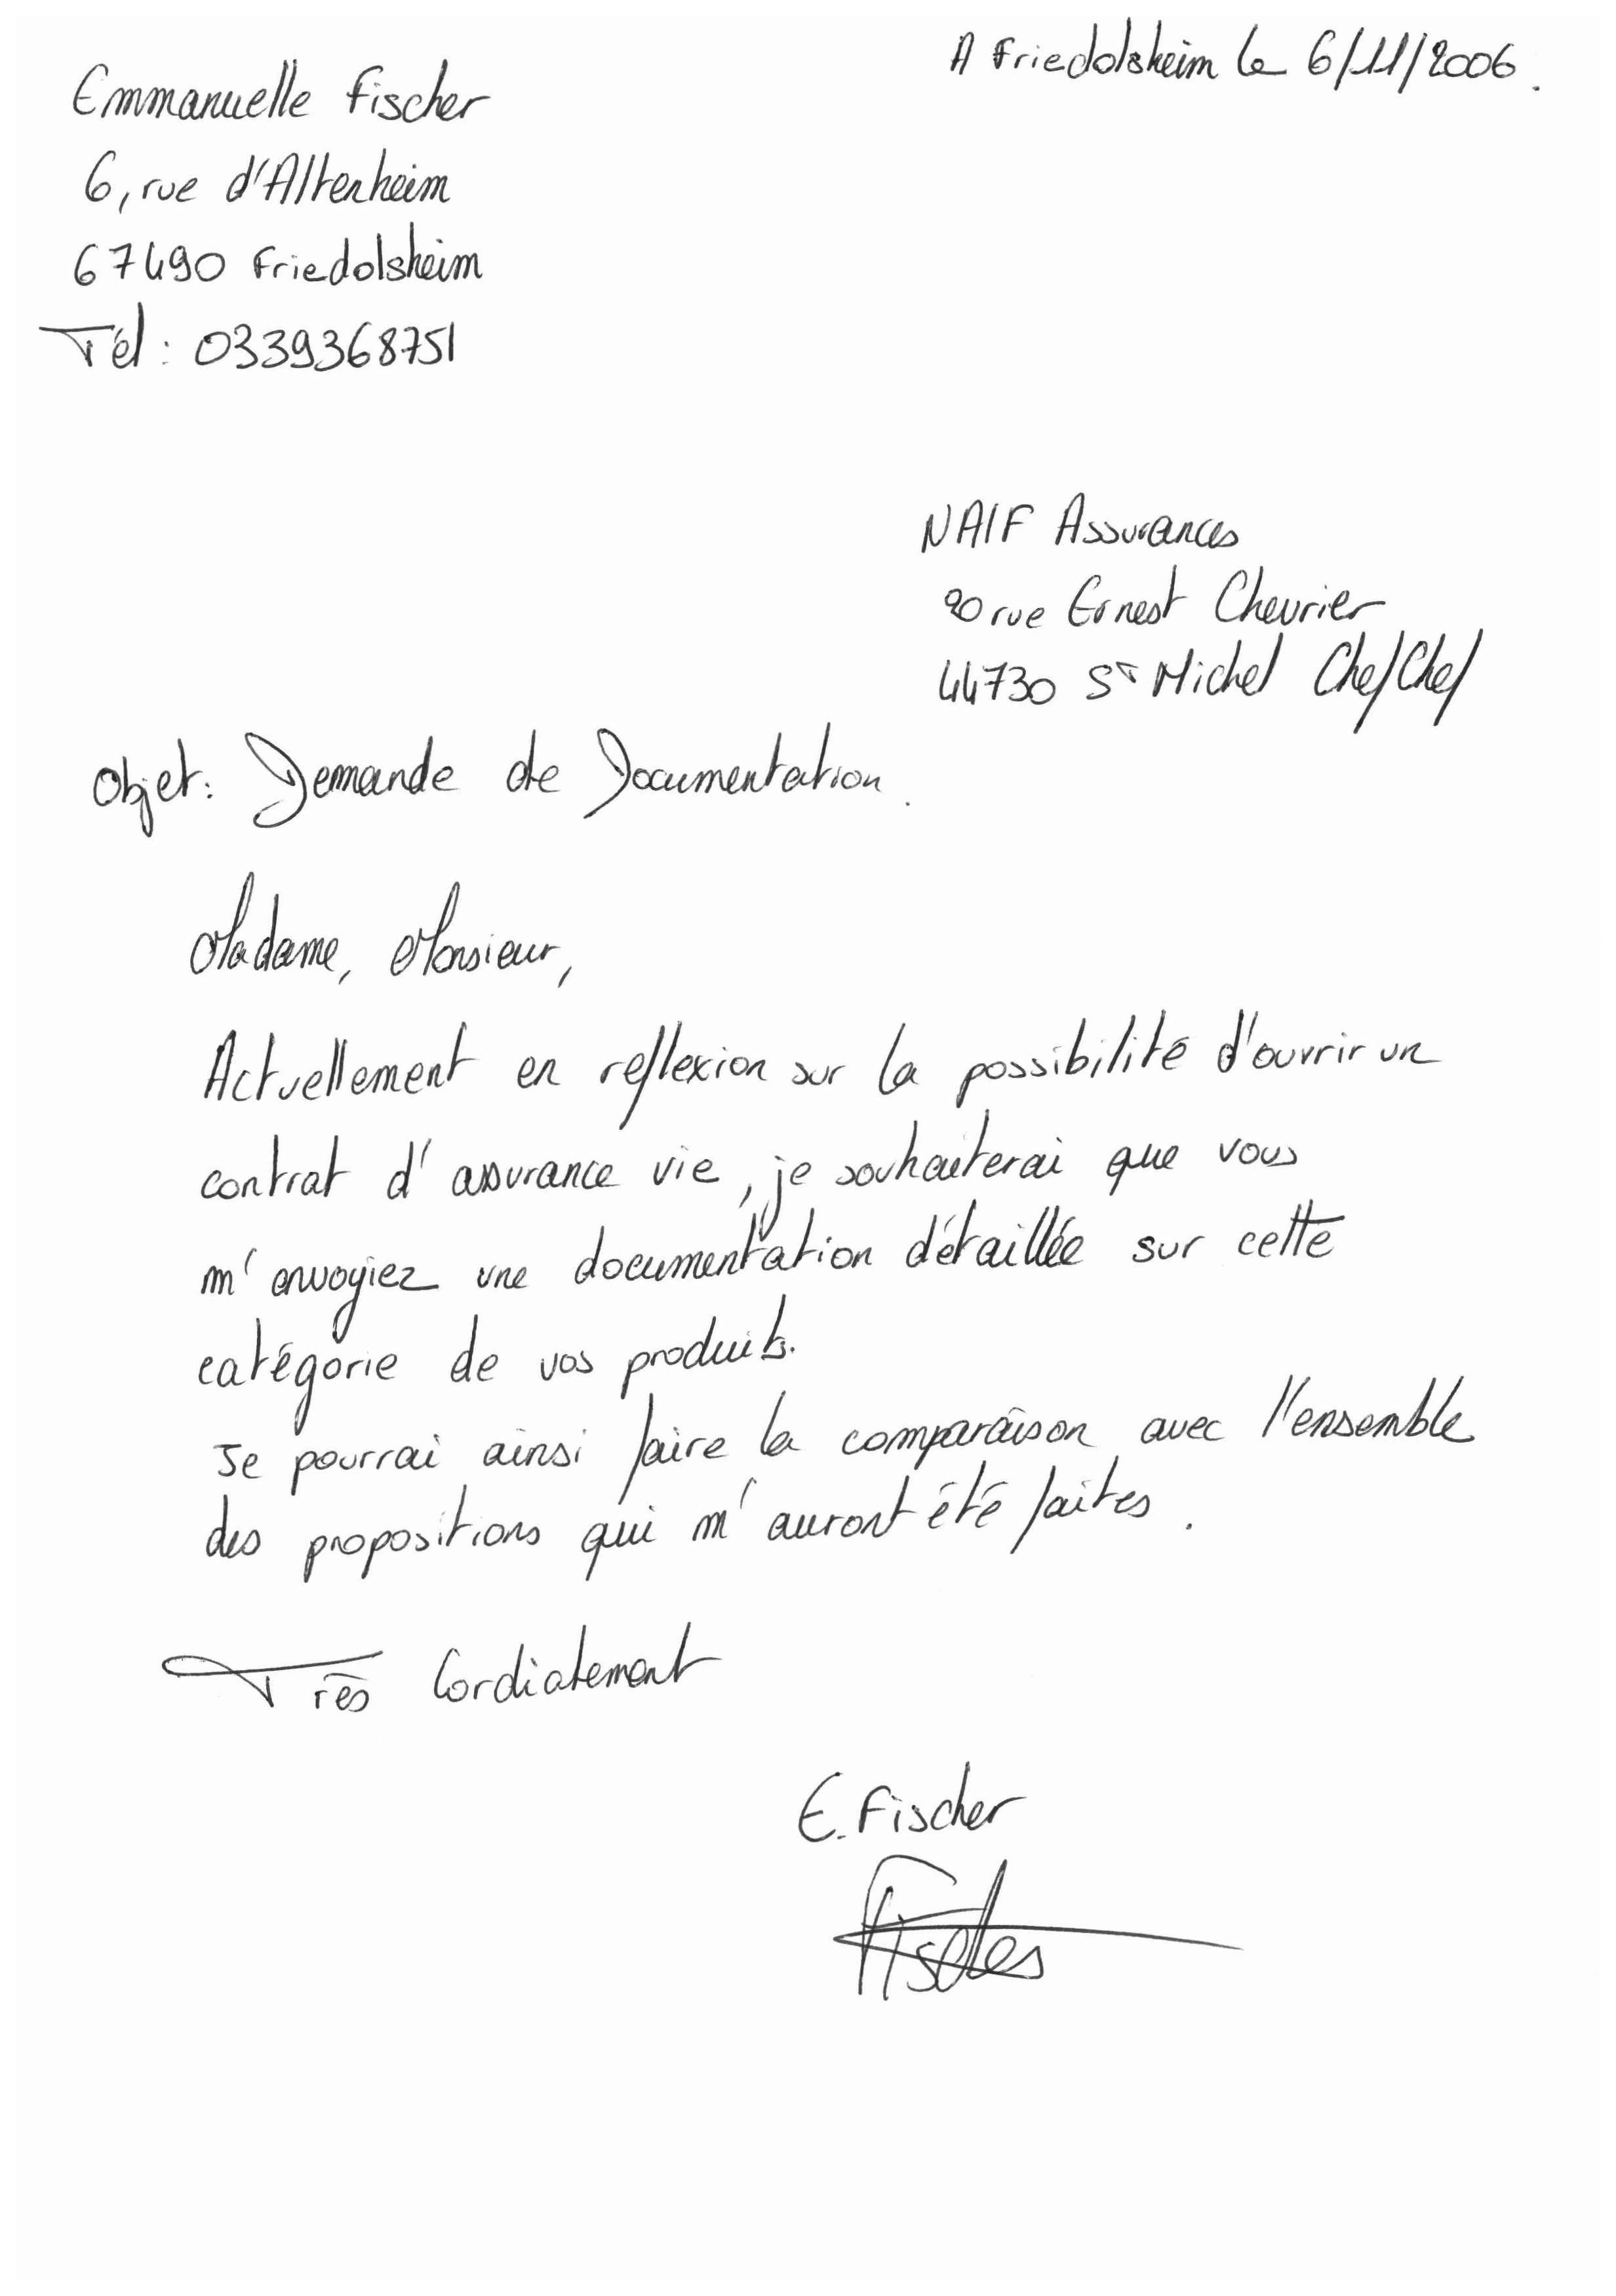 A Friedolsheim le 6/11/2006.
Emmanuelle Fischer
6, rue d'Altenheim
67490 Friedolsheim
Tél : 0339368751
NAIF Assurances
20 rue Ernest Chevrier
44730 St Michel Chef Chef
Objet : Demande de Documentation.
Madame, Monsieur,
Actuellement en reflexion sur la possibilité d'ouvrir un
contrat d'assurance vie, je souhaiterai que vous
m'envoyiez une documentation détaillée sur cette
catégorie de vos produits.
Je pourrai ainsi faire la comparaison avec l'ensemble
des propositions qui m'auront été faites.
Très Cordialement
E. Fischer
Fischer